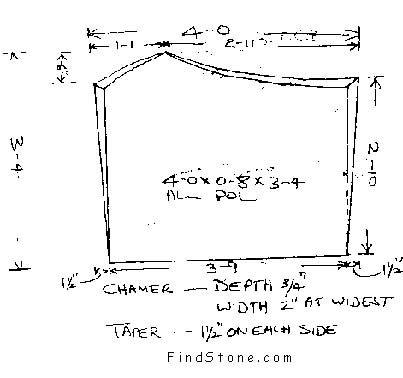 4-0
1-1
2-11
3-4
4-0 x 0-8 x 3-4
ALL POL
1½"
3-9
1½"
CHAMER — DEPTH 3/4"
WIDTH 2" AT WIDEST
TAPER -- 1½" ON EACH SIDE
FindStone.com